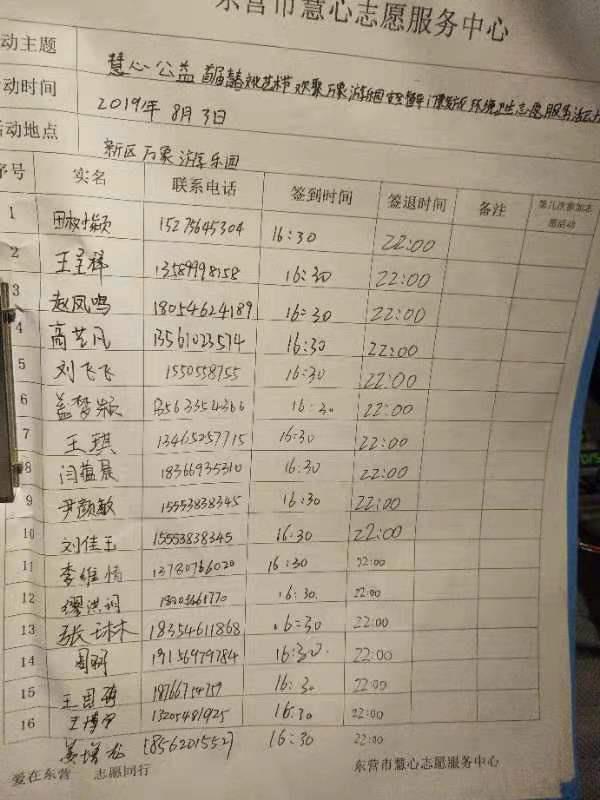 东营市慧心志愿服务中心
动主题 慧心公益 首届慧文化艺术节 欢聚万象游乐园 环境卫生志愿服务活动
动时间 2019年8月3日
活动地点 新区万象游乐园
序号 实名 联系电话 签到时间 签退时间 备注 第几次参加志愿活动
1 田颖 15275645304 16:30 22:00
2 王呈祥 13589998158 16:30 22:00
3 赵凤鸣 18054624189 16:30 22:00
4 高艺凡 13561023574 16:30 22:00
5 刘飞飞 1550558755 16:30 22:00
6 盖梦颖 13563354366 16:30 22:00
7 王琪 13465257715 16:30 22:00
8 闫蕴晨 18366935310 16:30 22:00
9 尹颜敏 15553838345 16:30 22:00
10 刘佳玉 15553838345 16:30 22:00
11 李维倩 13780766020 16:30 22:00
12 缪洪润 16:30 22:00
13 张琳林 18354611868 16:30 22:00
14 周明 19156979784 16:30 22:00
15 王国萍 18766754759 16:30 22:00
16 王博伊 13205481925 16:30 22:00
姜增龙 18562015527 16:30 22:00
爱在东营 志愿同行 东营市慧心志愿服务中心